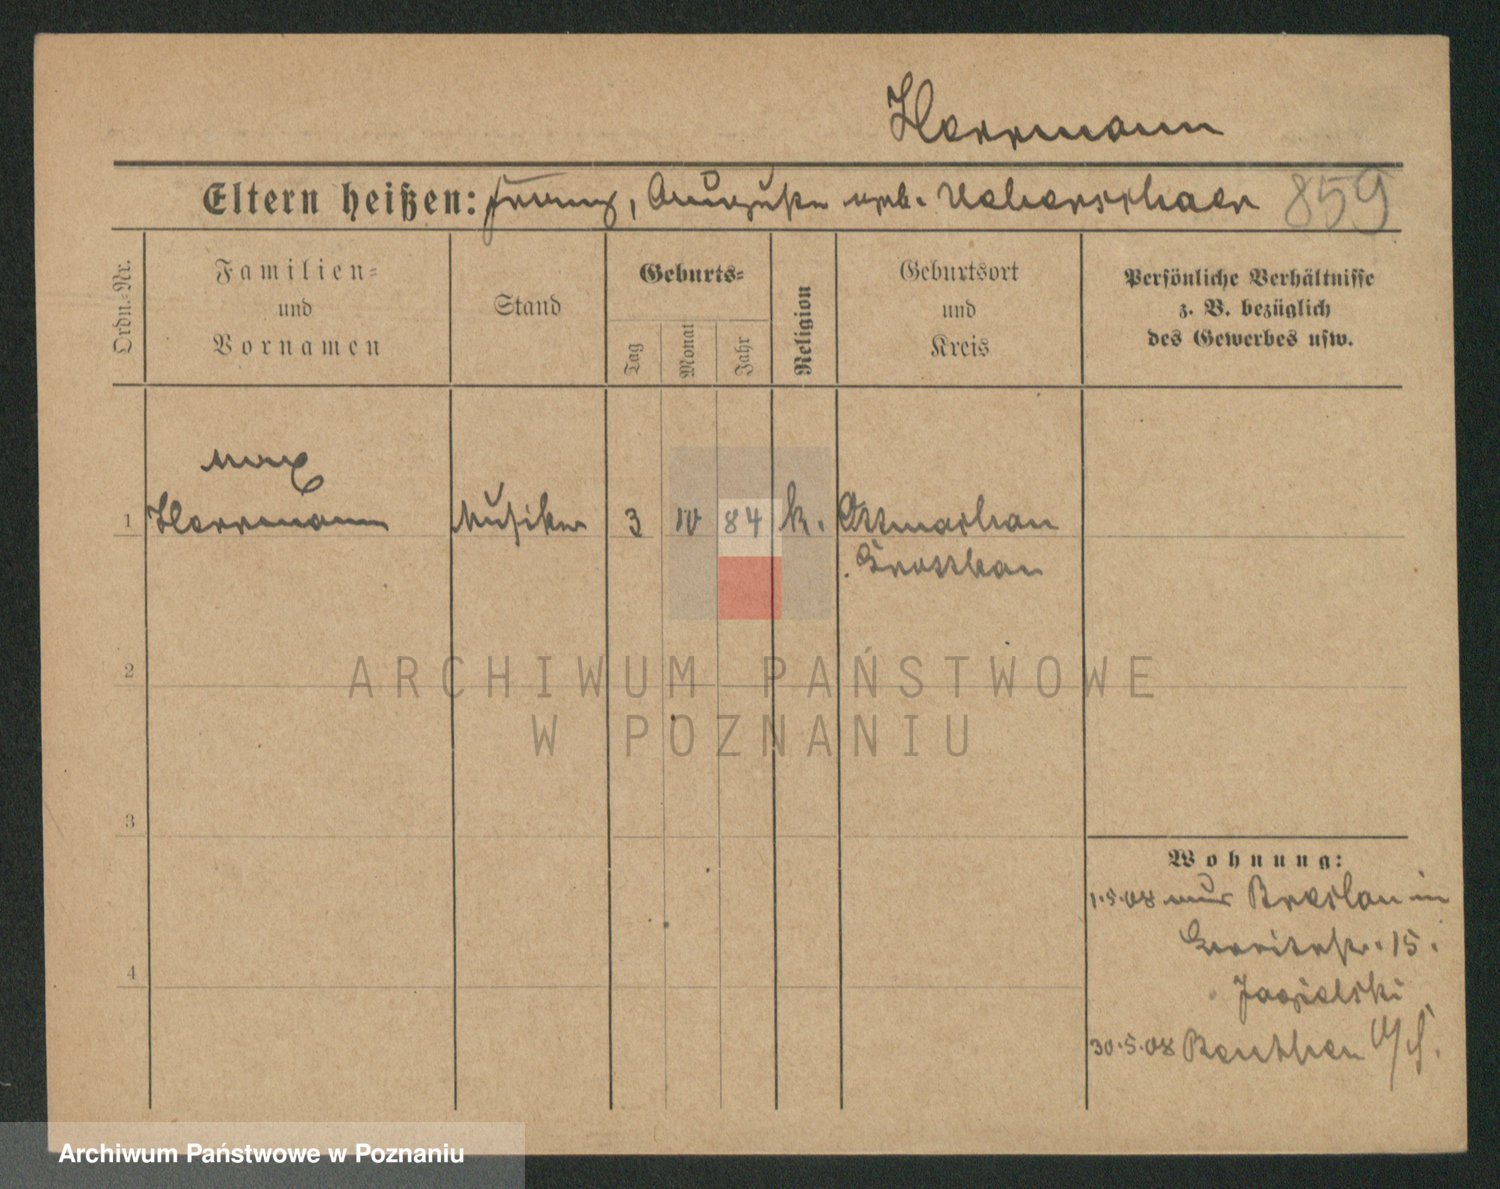 Herrmann
Eltern heißen: Franz, Auguste geb. Ueberschaer 859
Ordn.-Nr.
Familien-
und
Vornamen
Stand
Geburts-
Tag
Monat
Jahr
Religion
Geburtsort
und
Kreis
Persönliche Verhältnisse
z. B. bezüglich
des Gewerbes usw.
Max
1 Herrmann Musiker 3 IV 84 k. Ottmachau
Grottkau
2
ARCHIWUM PAŃSTWOWE
W POZNANIU
3
Wohnung:
1.5.08 aus Breslau in
15.
Jagielski
4
30.5.08 Beuthen O/S.
Archiwum Państwowe w Poznaniu